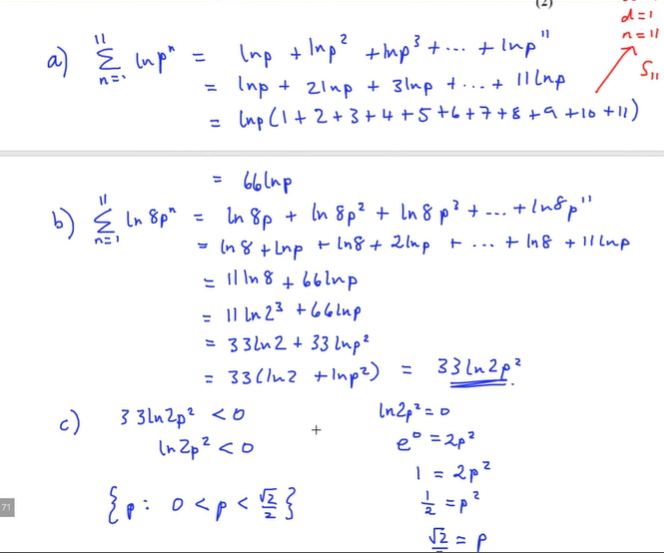 (2)
d = 1
n = 11
S₁₁
a) ∑ₙ₌₁¹¹ ln pⁿ = ln p + ln p² + ln p³ + ... + ln p¹¹
= ln p + 2 ln p + 3 ln p + ... + 11 ln p
= ln p (1 + 2 + 3 + 4 + 5 + 6 + 7 + 8 + 9 + 10 + 11)
= 66 ln p
b) ∑ₙ₌₁¹¹ ln 8pⁿ = ln 8p + ln 8p² + ln 8p³ + ... + ln 8p¹¹
= ln 8 + ln p + ln 8 + 2 ln p + ... + ln 8 + 11 ln p
= 11 ln 8 + 66 ln p
= 11 ln 2³ + 66 ln p
= 33 ln 2 + 33 ln p²
= 33 (ln 2 + ln p²) = 33 ln 2p².
c) 33 ln 2p² < 0
ln 2p² < 0
{p : 0 < p < √2/2}
ln 2p² = 0
e⁰ = 2p²
1 = 2p²
1/2 = p²
√2/2 = p
71